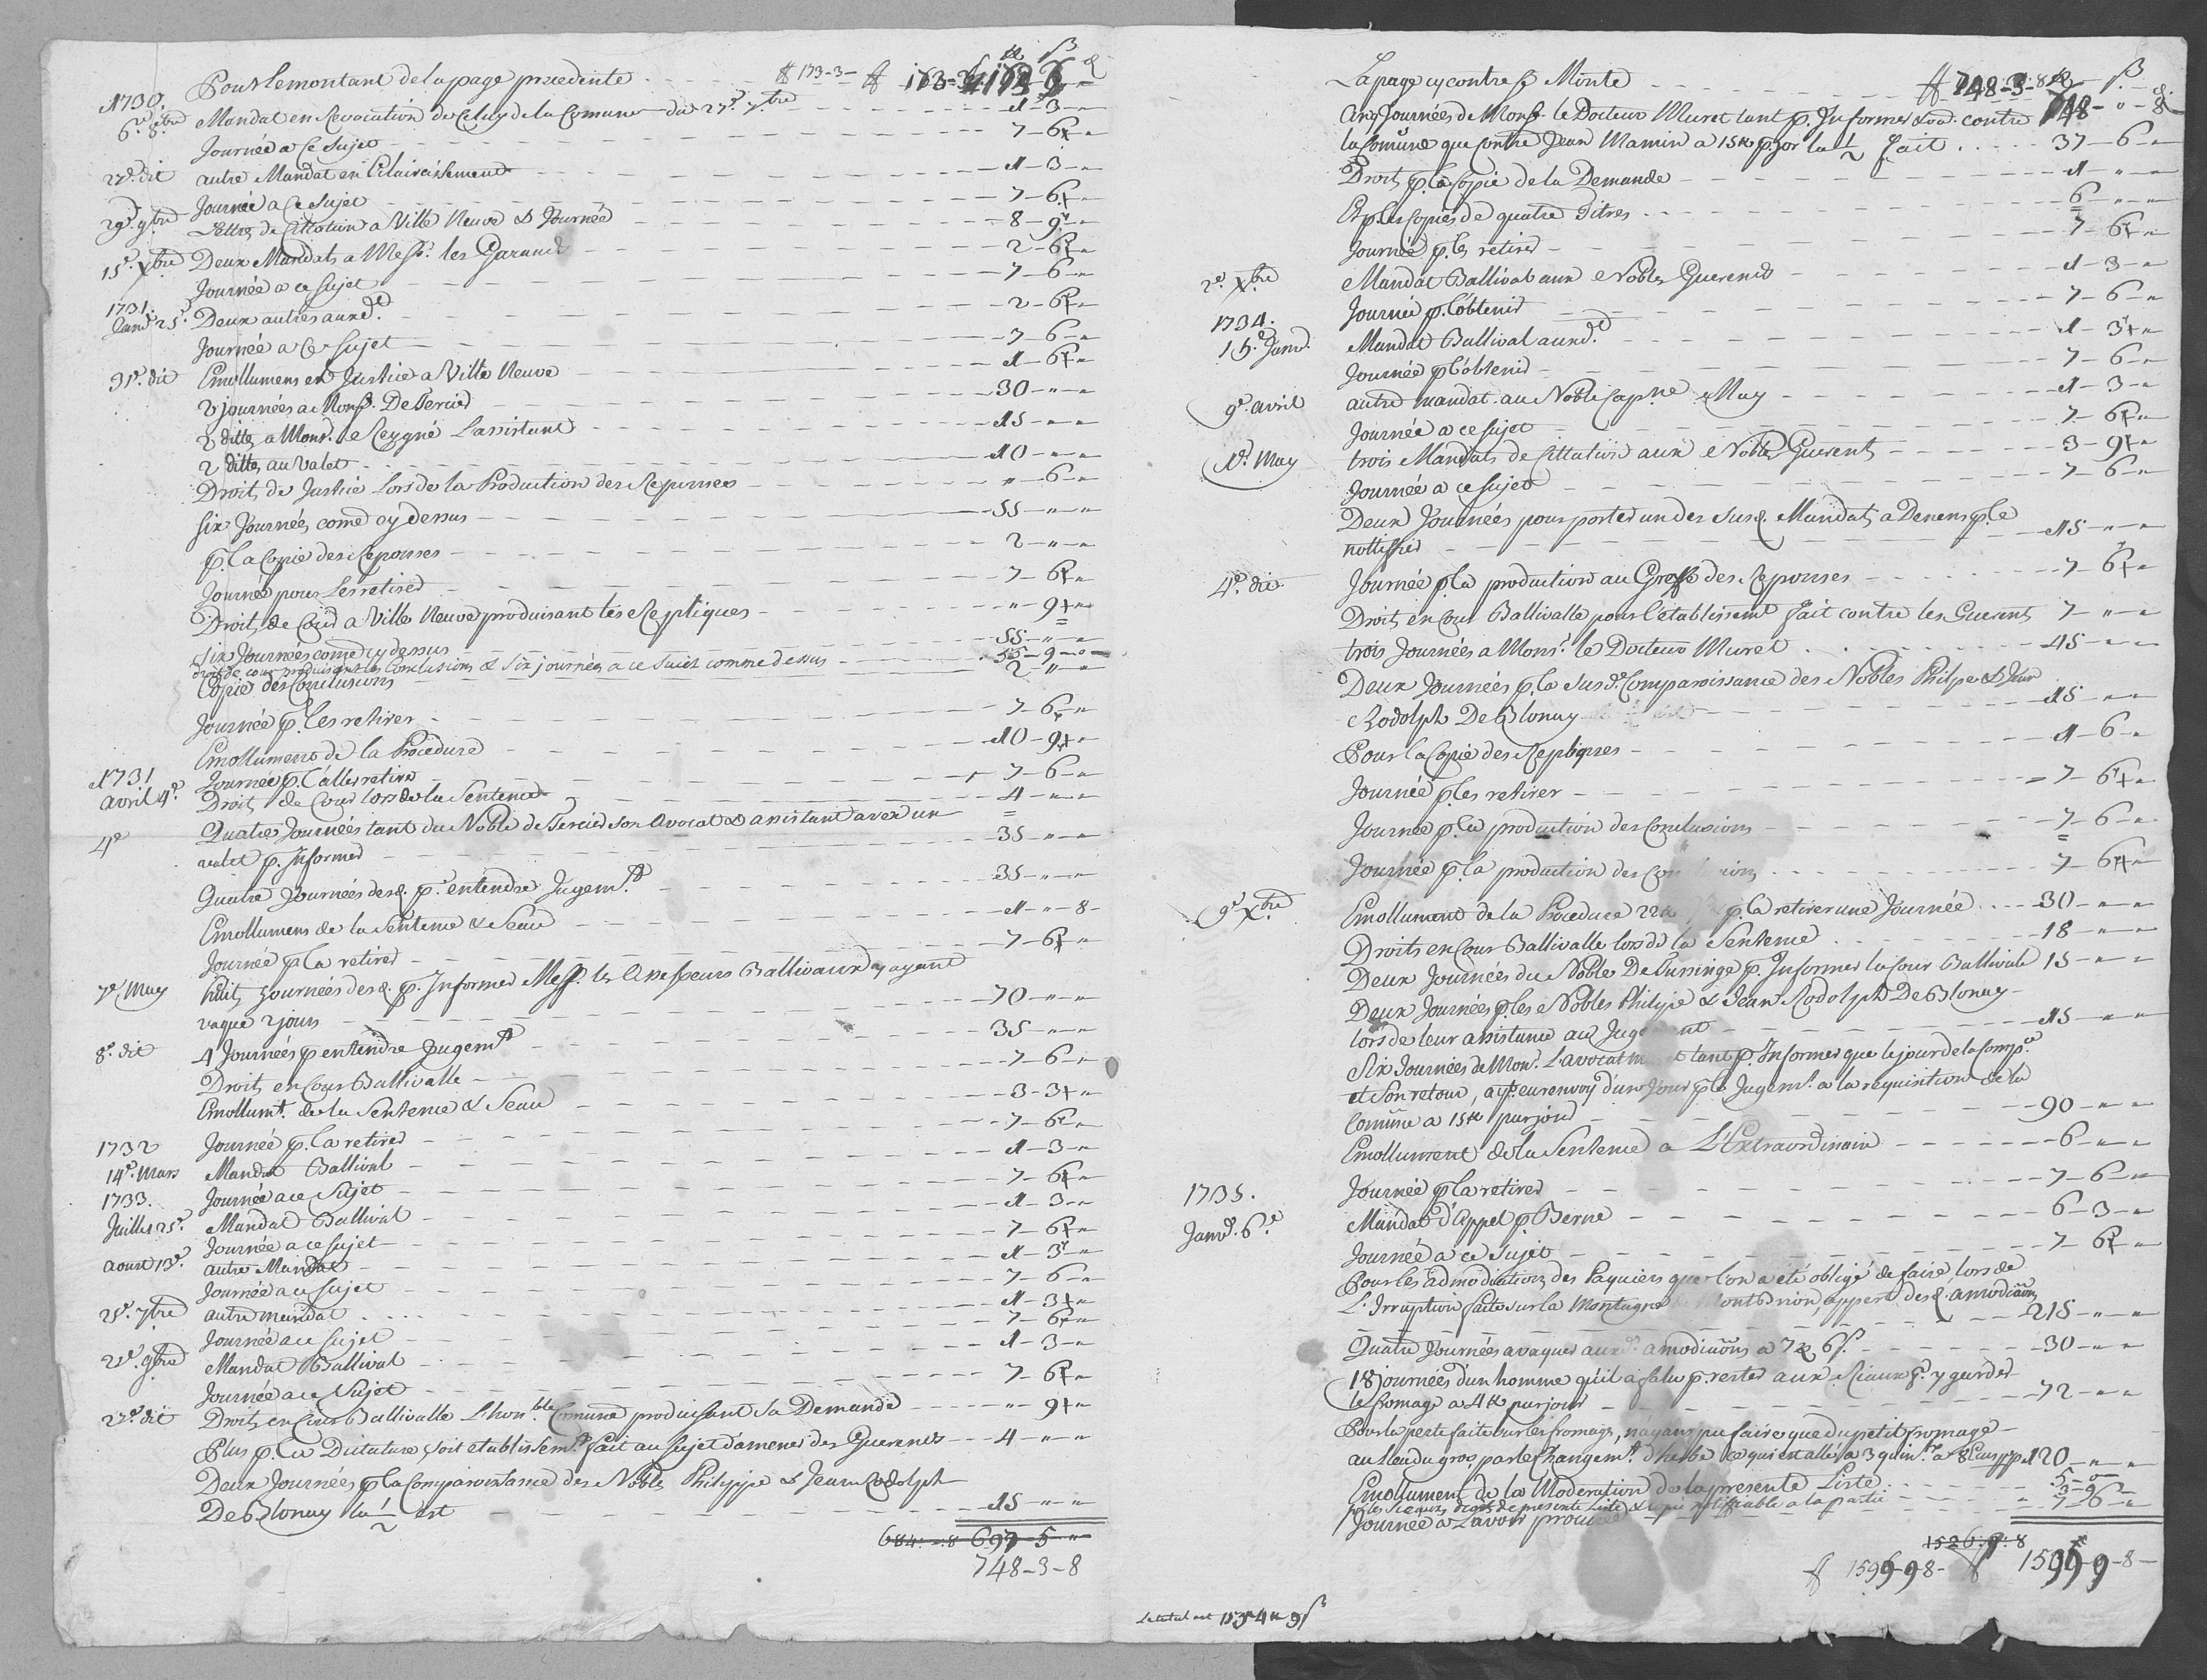 Pour le montant de la page precedente ƒ 173-3-
1730.
6e 8bre Mandat en Revocation de Celuy de la Comune du 27e 7bre 1-3-"
Journée a ce Sujet 7-6-"
27e dit autre Mandat en Eclaircissement 1-3-"
Journée a ce Sujet 7-6-"
29e 9bre Lettre de Cittation a Ville Neuve & Journée 8-9-"
15e Xbre Deux Mandats a Messrs. les Garands 2-6-"
Journée a ce Sujet 7-6-"
1731.
Janvr 25e Deux autres auxd. 2-6-"
Journée a Ce Sujet 7-6-"
31e dit Emollumens en Justice a Ville Neuve 1-6-"
2 journées a Monsr. De Tercier 30-"-"
2 dittes a Monsr. de Ceygné L'assistant 15-"-"
2 dittes au Valet 10-"-"
Droits de Justice Lors de la Production des Reponses "-6-"
Six Journées come cy dessus 55-"-"
p. la Copie des Reponses 2-"-"
Journée pour Les retirer 7-6-"
Droits de Cour a Ville Neuve produisant les Repliques "-9-"
Six Journées come cy dessus 55-"-"
droit de cour produisant les Conclusions & six journées a ce sujet comme dessus 55-9-"
Copie des Conclusions 2-"-"
Journée p. les retirer 7-6-"
Emollumens de la Procedure 10-9-"
1731 Journée p. l'aller retirer 7-6-"
avril 4e Droit de Cour lors de la Sentence 4-"-"
4e Quatre Journées tant du Noble de Tercier son Avocat & assistant avec un
valet p. Informer 35-"-"
Quatre Journées desd. pr. entendre Jugemt. 35-"-"
Emollumens de la Sentence & Seau 1-"-8-
Journée p. la retirer 7-6-"
7e May huit Journées desd. p. Informer Messrs. les Assesseurs Ballivaux y ayant
vaqué 2 jours 70-"-"
8e dit 4 Journées p entendre Jugemt 35-"-"
Droits en Cour Ballivalle 7-6-"
Emollumt. de la Sentence & Seau 3-3-"
Journée p. la retirer 7-6-"
1732
14e Mars Mandat Ballival 1-3-"
Journée a ce Sujet 7-6-"
1733.
Juillet 25e Mandat Ballival 1-3-"
Journée a ce sujet 7-6-"
aoust 13e autre Mandat 1-3-"
Journée a ce sujet 7-6-"
25e 7bre autre mandat 1-3-"
Journée a ce sujet 7-6-"
21e 9bre Mandat Ballival 1-3-"
Journée a ce Sujet 7-6-"
27e dit Droits en Cour Ballivalle L'honble. Comune produisant sa Demande "-9-"
Plus p. la Dictature, soit etablissemt. fait au sujet d'amener des Guerents 4-"-"
Deux Journées p la Comparoissance des Nobles Philippe & Jean Rodolph
De Blonay la ½ est 15-"-"
684-"-8 697-5-"
748-3-8
La page cy contre p Monte ƒ 748-3-8
Cinq Journées de Monsr. le Docteur Muret tant p. Informer & cd. contre
la Comune que Contre Jean Mamin a 15 p Jor la ½ fait 37-6-"
Droit p. la Copie de la Demande 1-"-"
Et p les Copies de quatre Titres 6-"-"
Journée p. les retirer 7-6-"
2e Xbre Mandat Ballival aux Nobles Guerends 1-3-"
Journée p. l'obtenir 7-6-"
1734.
15e Janvr. Mandat Ballival auxd. 1-3-"
Journée p l'obtenir 7-6-"
9e avril autre mandat au Noble Capne May 1-3-"
Journée a ce sujet 7-6-"
1r. May trois Mandats de Cittation aux Nobles Guerents 3-9-"
Journée a ce sujet 7-6-"
Deux Journées pour porter un des susd. Mandats a Denens p. le
nottiffier 15-"-"
4e dit Journée p la production au Greffe des Reponses 7-6-"
Droits en Cour Ballivalle pour l'etablissemt fait contre les Guerents 7-"-"
trois Journées a Monsr. le Docteur Muret 45-"-"
Deux Journées p. la susde Comparoissance des Nobles Philpe & Jean
Rodolph De Blonay 15-"-"
Pour la Copie des Repliques 1-6-"
Journée p les retirer 7-6-"
Journée p. la production des Conclusions 7-6-"
Journée p. la production des Con 7-6-"
9e Xbre Emollument de la Procedure 22 p. la retirer une Journée 30-"-"
Droits en Cour Ballivalle lors de la Sentence 18-"-"
Deux Journées du Noble De Lussinge p. Informer la Cour Ballivale 15-"-"
Deux Journées p. les Nobles Philippe & Jean Rodolph De Blonay
lors de leur assistance au Jugement 15-"-"
Six Journées de Monsr. L'avocat tant p. Informer que le jour de la Compce.
et son retour, ayt. eu renvoy d'un Jour p le Jugemt. a la requisition de la
Comune a 15 par jour 90-"-"
Emollument de la Sentence a L'Extraordinaire 6-"-"
Journée p la retirer 7-6-"
1735.
Janvr. 6e Mandat d'Appel p. Berne 6-3-"
Journée a ce sujet 7-6-"
Pour les admodiations des Paquiers que lon a été obligé de faire lors de
L'Irruption faite sur la Montagne appert desd. amodiaõns 215-"-"
Quatre Journées a vaquer auxd. amodiaõns a 7 6 s. 30-"-"
18 journées d'un homme qu'il a falu p. rester aux Riaux pr. y garder
le fromage a 4 par jour 72-"-"
Pour la perte faite sur les fromages, n'ayant pu faire que du petit fromage
au lieu du gros, par le Changemt. d'herbe ce qui est allé a 3 quint. a 8 Ecus pp 120-"-"
Emollument de la Moderation de la presente Liste 5-"-
presente Liste & copie notiffiable a la partie 3-9-
Journée a L'avoir procuré 7-6-"
1526-9-8
ƒ 1596-9-8- ƒ 1596-9-8-
Le total est 1534 9